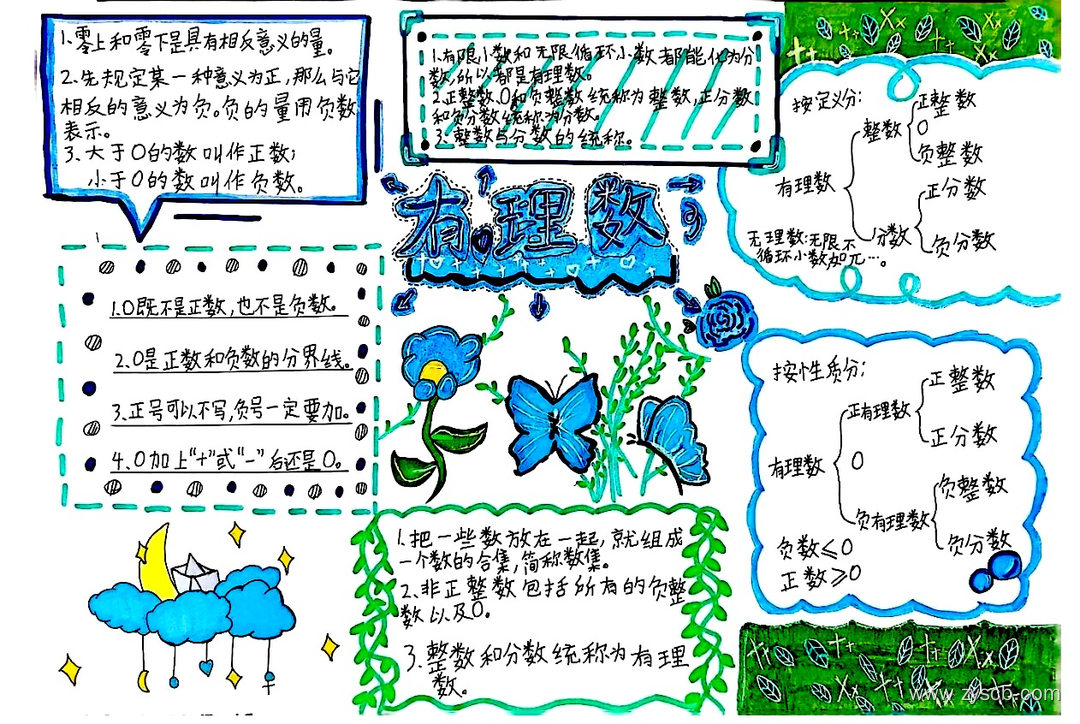 1.零上和零下是具有相反意义的量。
2.先规定某一种意义为正,那么与它
相反的意义为负。负的量用负数
表示。
3.大于0的数叫作正数;
小于0的数叫作负数。
1.有限小数和无限循环小数都能化为分
数,所以都是有理数。
2.正整数、0和负整数统称为整数,正分数
和负分数统称为分数。
3.整数与分数的统称。
按定义分:
有理数
整数
正整数
0
负整数
分数
正分数
负分数
无理数:无限不
循环小数如π…。
有理数
1.0既不是正数,也不是负数。
2.0是正数和负数的分界线。
3.正号可以不写,负号一定要加。
4.0加上“+”或“-”后还是0。
按性质分:
有理数
正有理数
正整数
正分数
0
负有理数
负整数
负分数
负数≤0
正数≥0
1.把一些数放在一起,就组成
一个数的合集,简称数集。
2.非正整数包括所有的负整
数以及0。
3.整数和分数统称为有理
数。
www.zysob.com